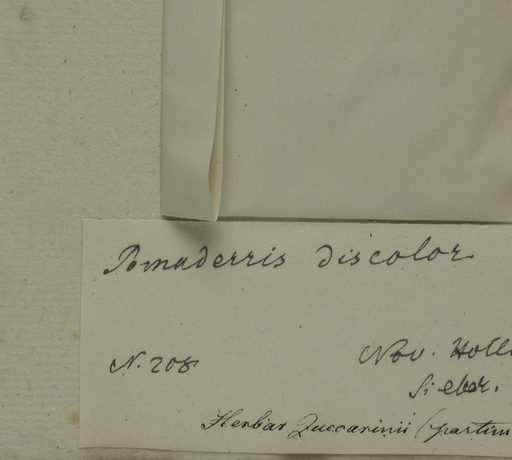 Pomaderris discolor
N. 208 Nov. Holl
Sieber.
Herbar Zuccarinii (partim